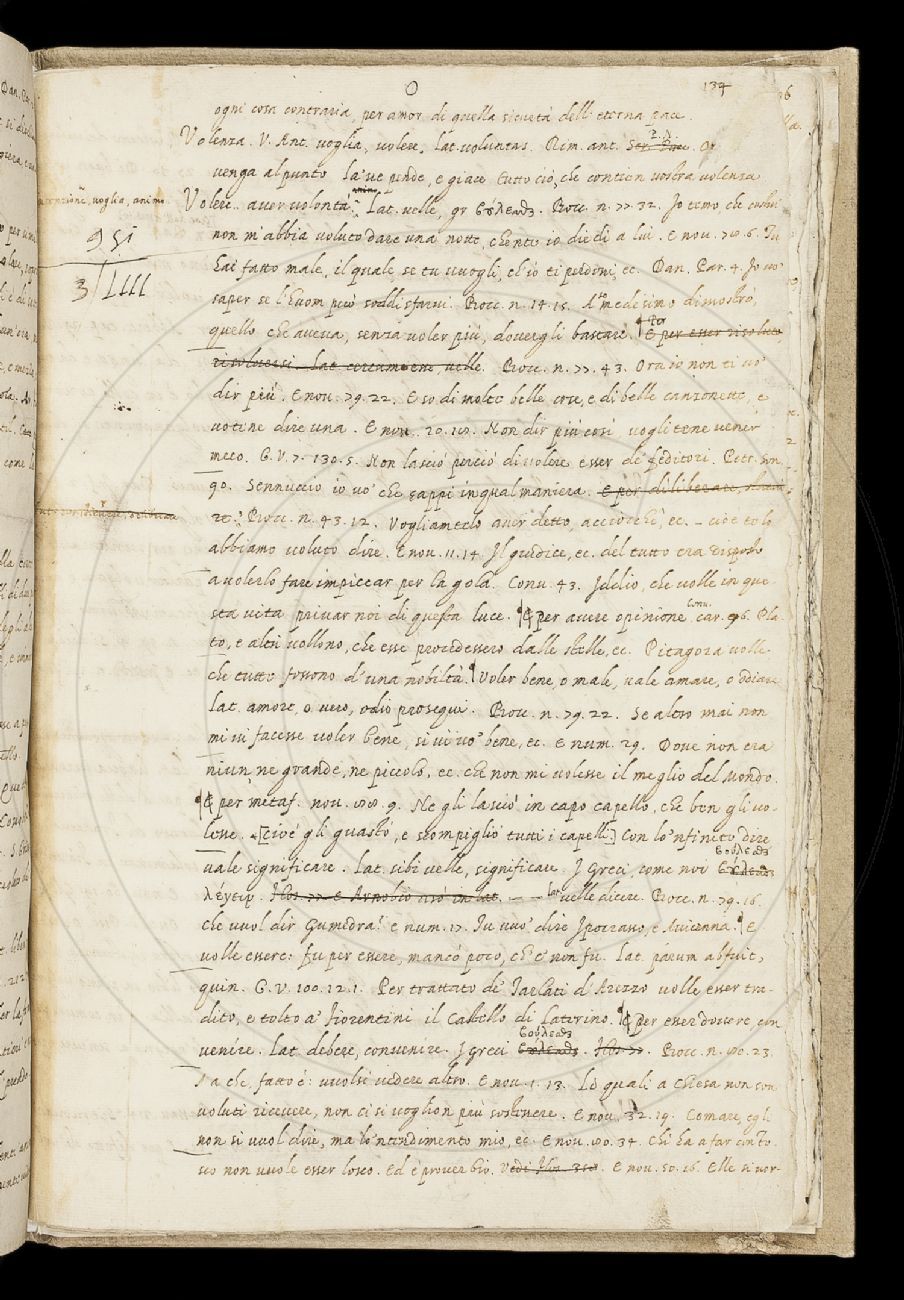 O
134
ogni cosa contraria, per amor di quella sicurtà dell'eterna pace.
Volenza. V. Ant. voglia, volere. lat. voluntas. Rim. ant. Or
venga al punto la ve pende, e giace tutto ciò, che contien vostra volenza
intenzione, voglia, animo
Volere. aver volontà, animo. Lat. velle, gr Bocc. n. 77. 32. Io temo che costui
non m'abbia voluto dare una notte, chente io diedi a lui. E nov. 6. Tu
9 51
hai fatto male, il quale, se tu vuogli, ch'io ti perdoni, ec. Dan. Par. 4. Io vo'
3 LLLL
saper se l'huom può soddisfarvi. Bocc. n. 14. 15. medesimo dimostrò,
quello che aveva, senza voler più, dovergli bastare. E per esser risoluto,
risolversi. Lat. velle. Bocc. n. 77. 43. Ora io non ti vo'
dir più. E nov. 79. 22. E so di molte belle cose, e di belle canzonette, e
votine dire una. E nov. 20. Non dir più così voglitene venir
meco. G. V. 7. 130. 5. Non lasciò perciò di volere esser de' feditori. Petr. Son.
90. Sennuccio io vo' che sappi in qual maniera. E per diliberare,
Bocc. n. 43. 12. Vogliamcelo aver detto, acciocchè, ec. – cioè ce lo
abbiamo voluto dire. E nov. 11. 14 Il giudice, ec. del tutto era disposto
a volerlo fare impiccar per la gola. Conv. 43. Iddio, che volle in que
sta vita privar noi di questa luce. E per avere opinione. Conv. car. 96. Pla-
to, e altri vollono, che esse procedessero dalle stelle, ec. Pitagora volle
che tutte fossono d'una nobiltà. Voler bene, o male, vale amare, o odiare
lat. amore, o vero, odio prosequi. Bocc. n. 79. 22. Se altro mai non
mi vi facesse voler bene, si vi vo' bene, ec. E num. 29. Dove non era
niun, ne grande, ne piccolo, ec. che non mi volesse il meglio del Mondo.
E per metaf. nov. 9. Ne gli lasciò in capo capello, che ben gli vo-
lesse. [cioè gli guastò, e scompigliò tutti i capelli.] Con lo 'nfinito dire
vale significare. Lat. sibi velle, significare. I Greci, come noi
λέγειν. velle dicere. Bocc. n. 79. 16.
che vuol dir Gumedra? e num. 17. Tu vuo' dire Iporzasso, e Avicenna. E
volle essere: fu per essere, mancò poco, ch'e' non fu. Lat. parum abfuit,
quin. G. V. 100. 12. 1. Per trattato de' Tarlati d'Arezzo volle esser tra-
dito, e tolto a' Fiorentini il Castello di Laterino. E per esser dovere, con
venire. Lat. debere, convenire. I Greci Bocc. n. 23.
a che, fatto è: vuolsi vedere altro. E nov. 1. 13. Li quali a Chiesa non son
voluti ricevere, non ci si voglion più sostenere. E nov. 32. 19. Comare, egli
non si vuol dire, ma lo 'ntendimento mio, ec. E nov. 34. Chi ha a far con to-
sco non vuole esser losco. Ed è proverbio. E nov. 50. 16. Elle si vor-